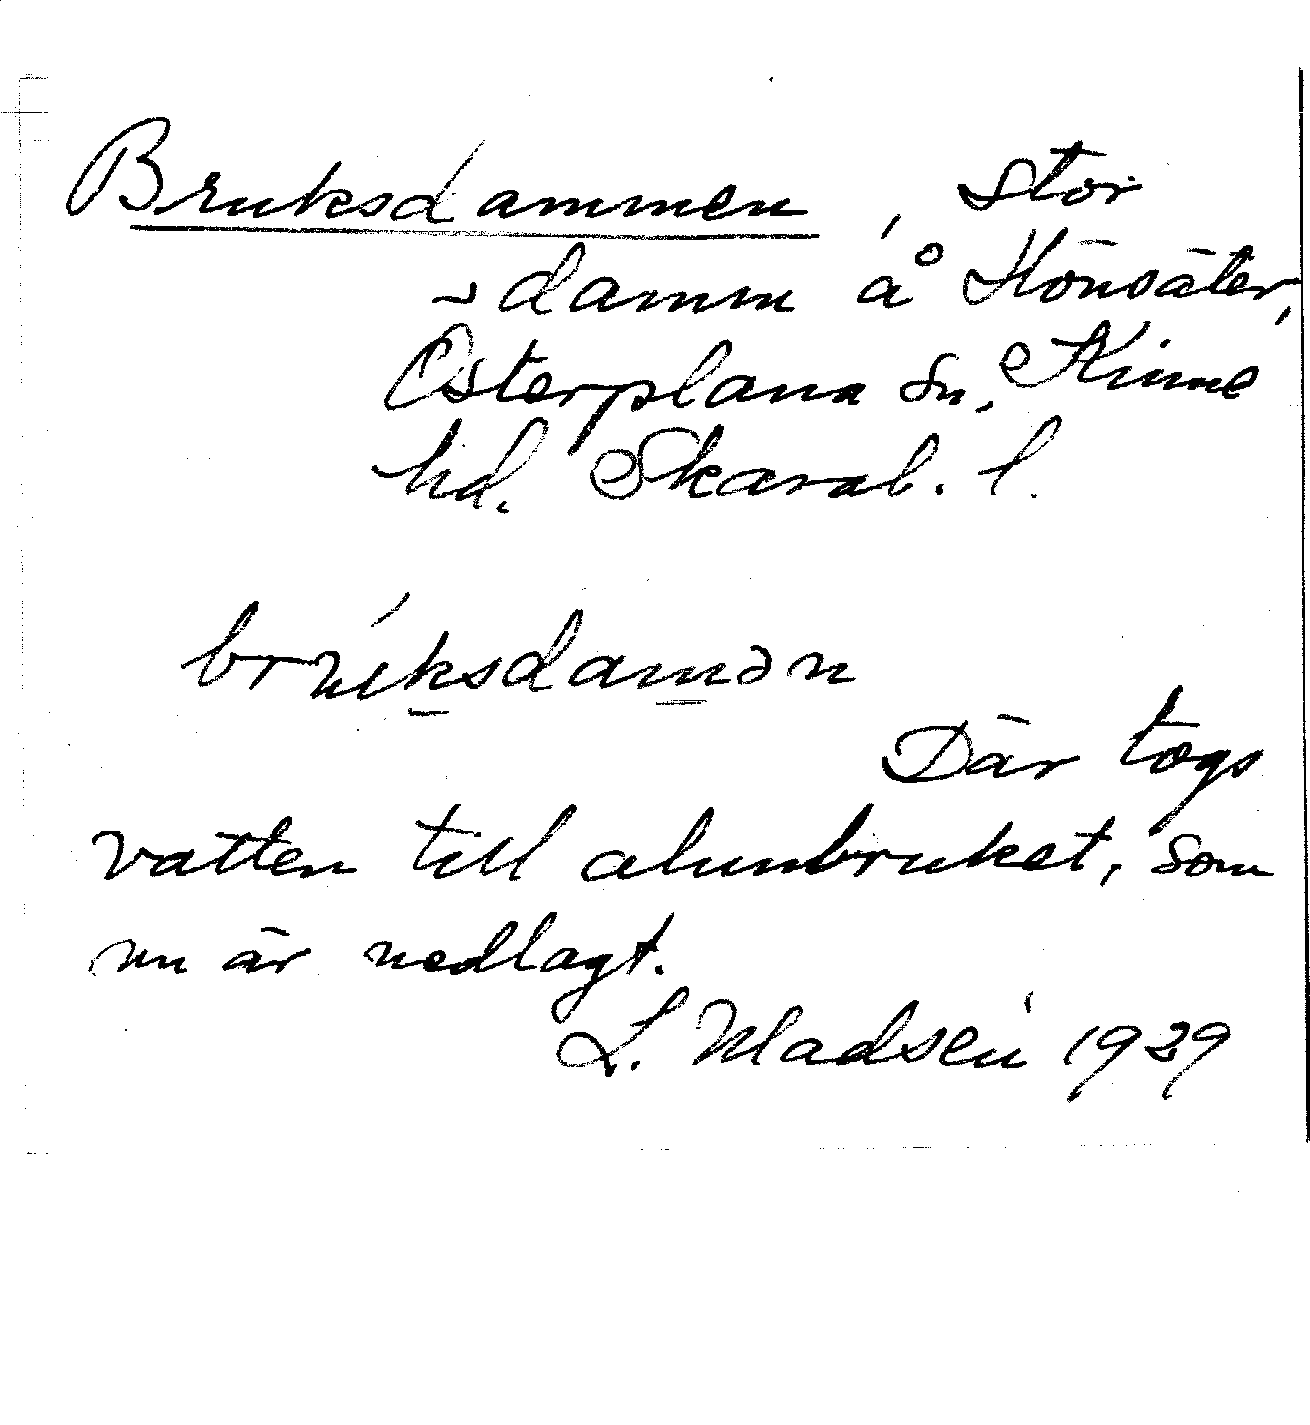 Bruksdammen, stor
damm å Hönsäter,
Österplana sn, Kinne
hd. Skarab. l.
brúksdamən
Där togs
vatten till alunbruket, som
nu är nedlagt.
L. Madsén 1929